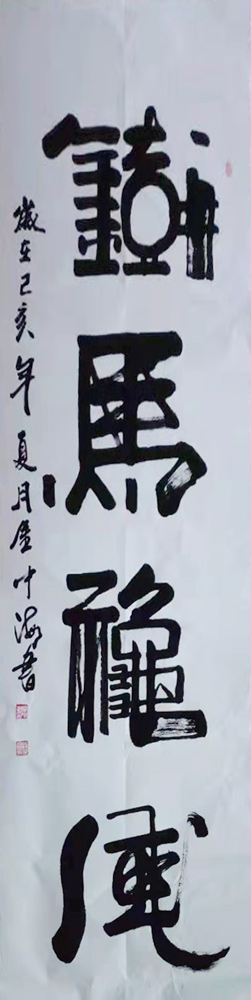 鐵馬穐風
歲在己亥年夏月叶海書